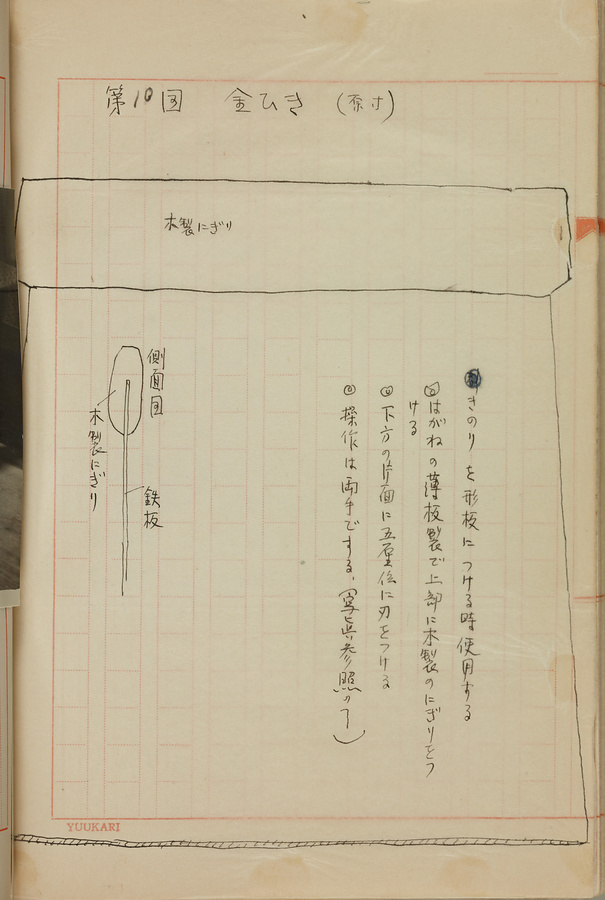 第10図 金ひき (原寸)
木製にぎり
きのりを形板につける時使用する
はがねの薄板製で上部に木製のにぎりをつ
ける
下方の片面に五厘位に刃をつける
操作は両手でする、(写真参照の1)
側面図
木製にぎり
鉄板
YUUKARI